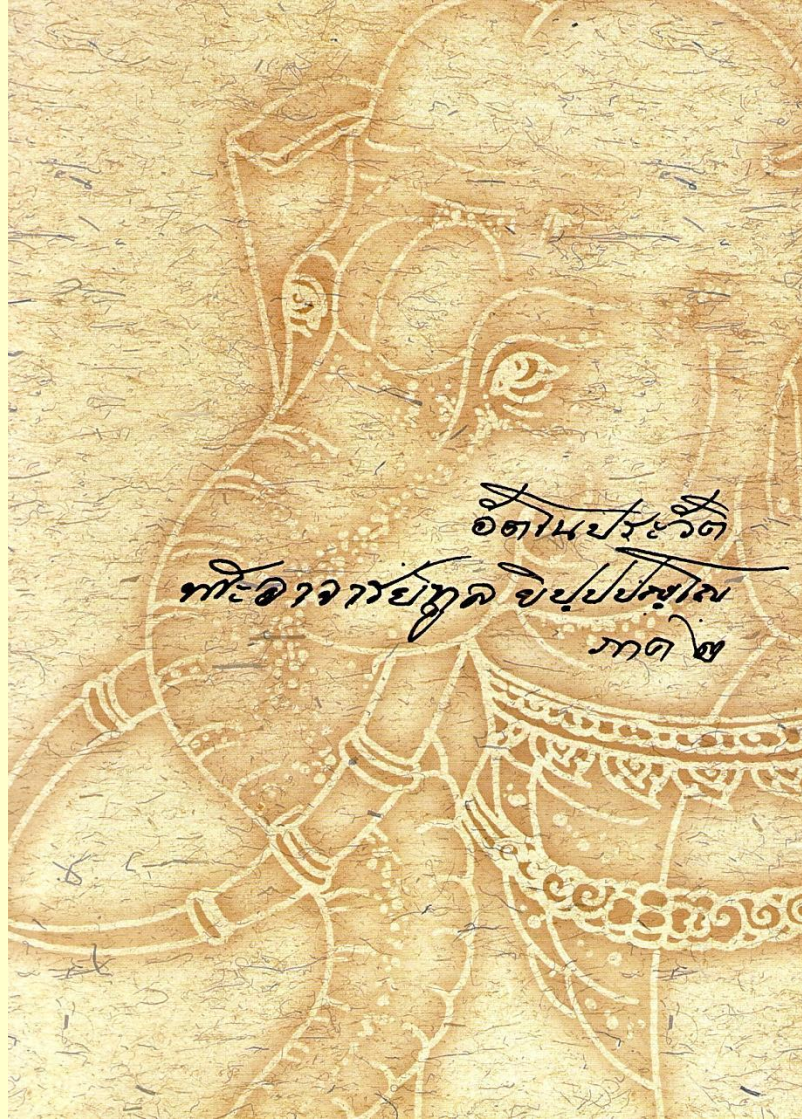 อัตโนประวัติ
พระอาจารย์ทูล ขิปฺปปญฺโญ
ภาค ๒